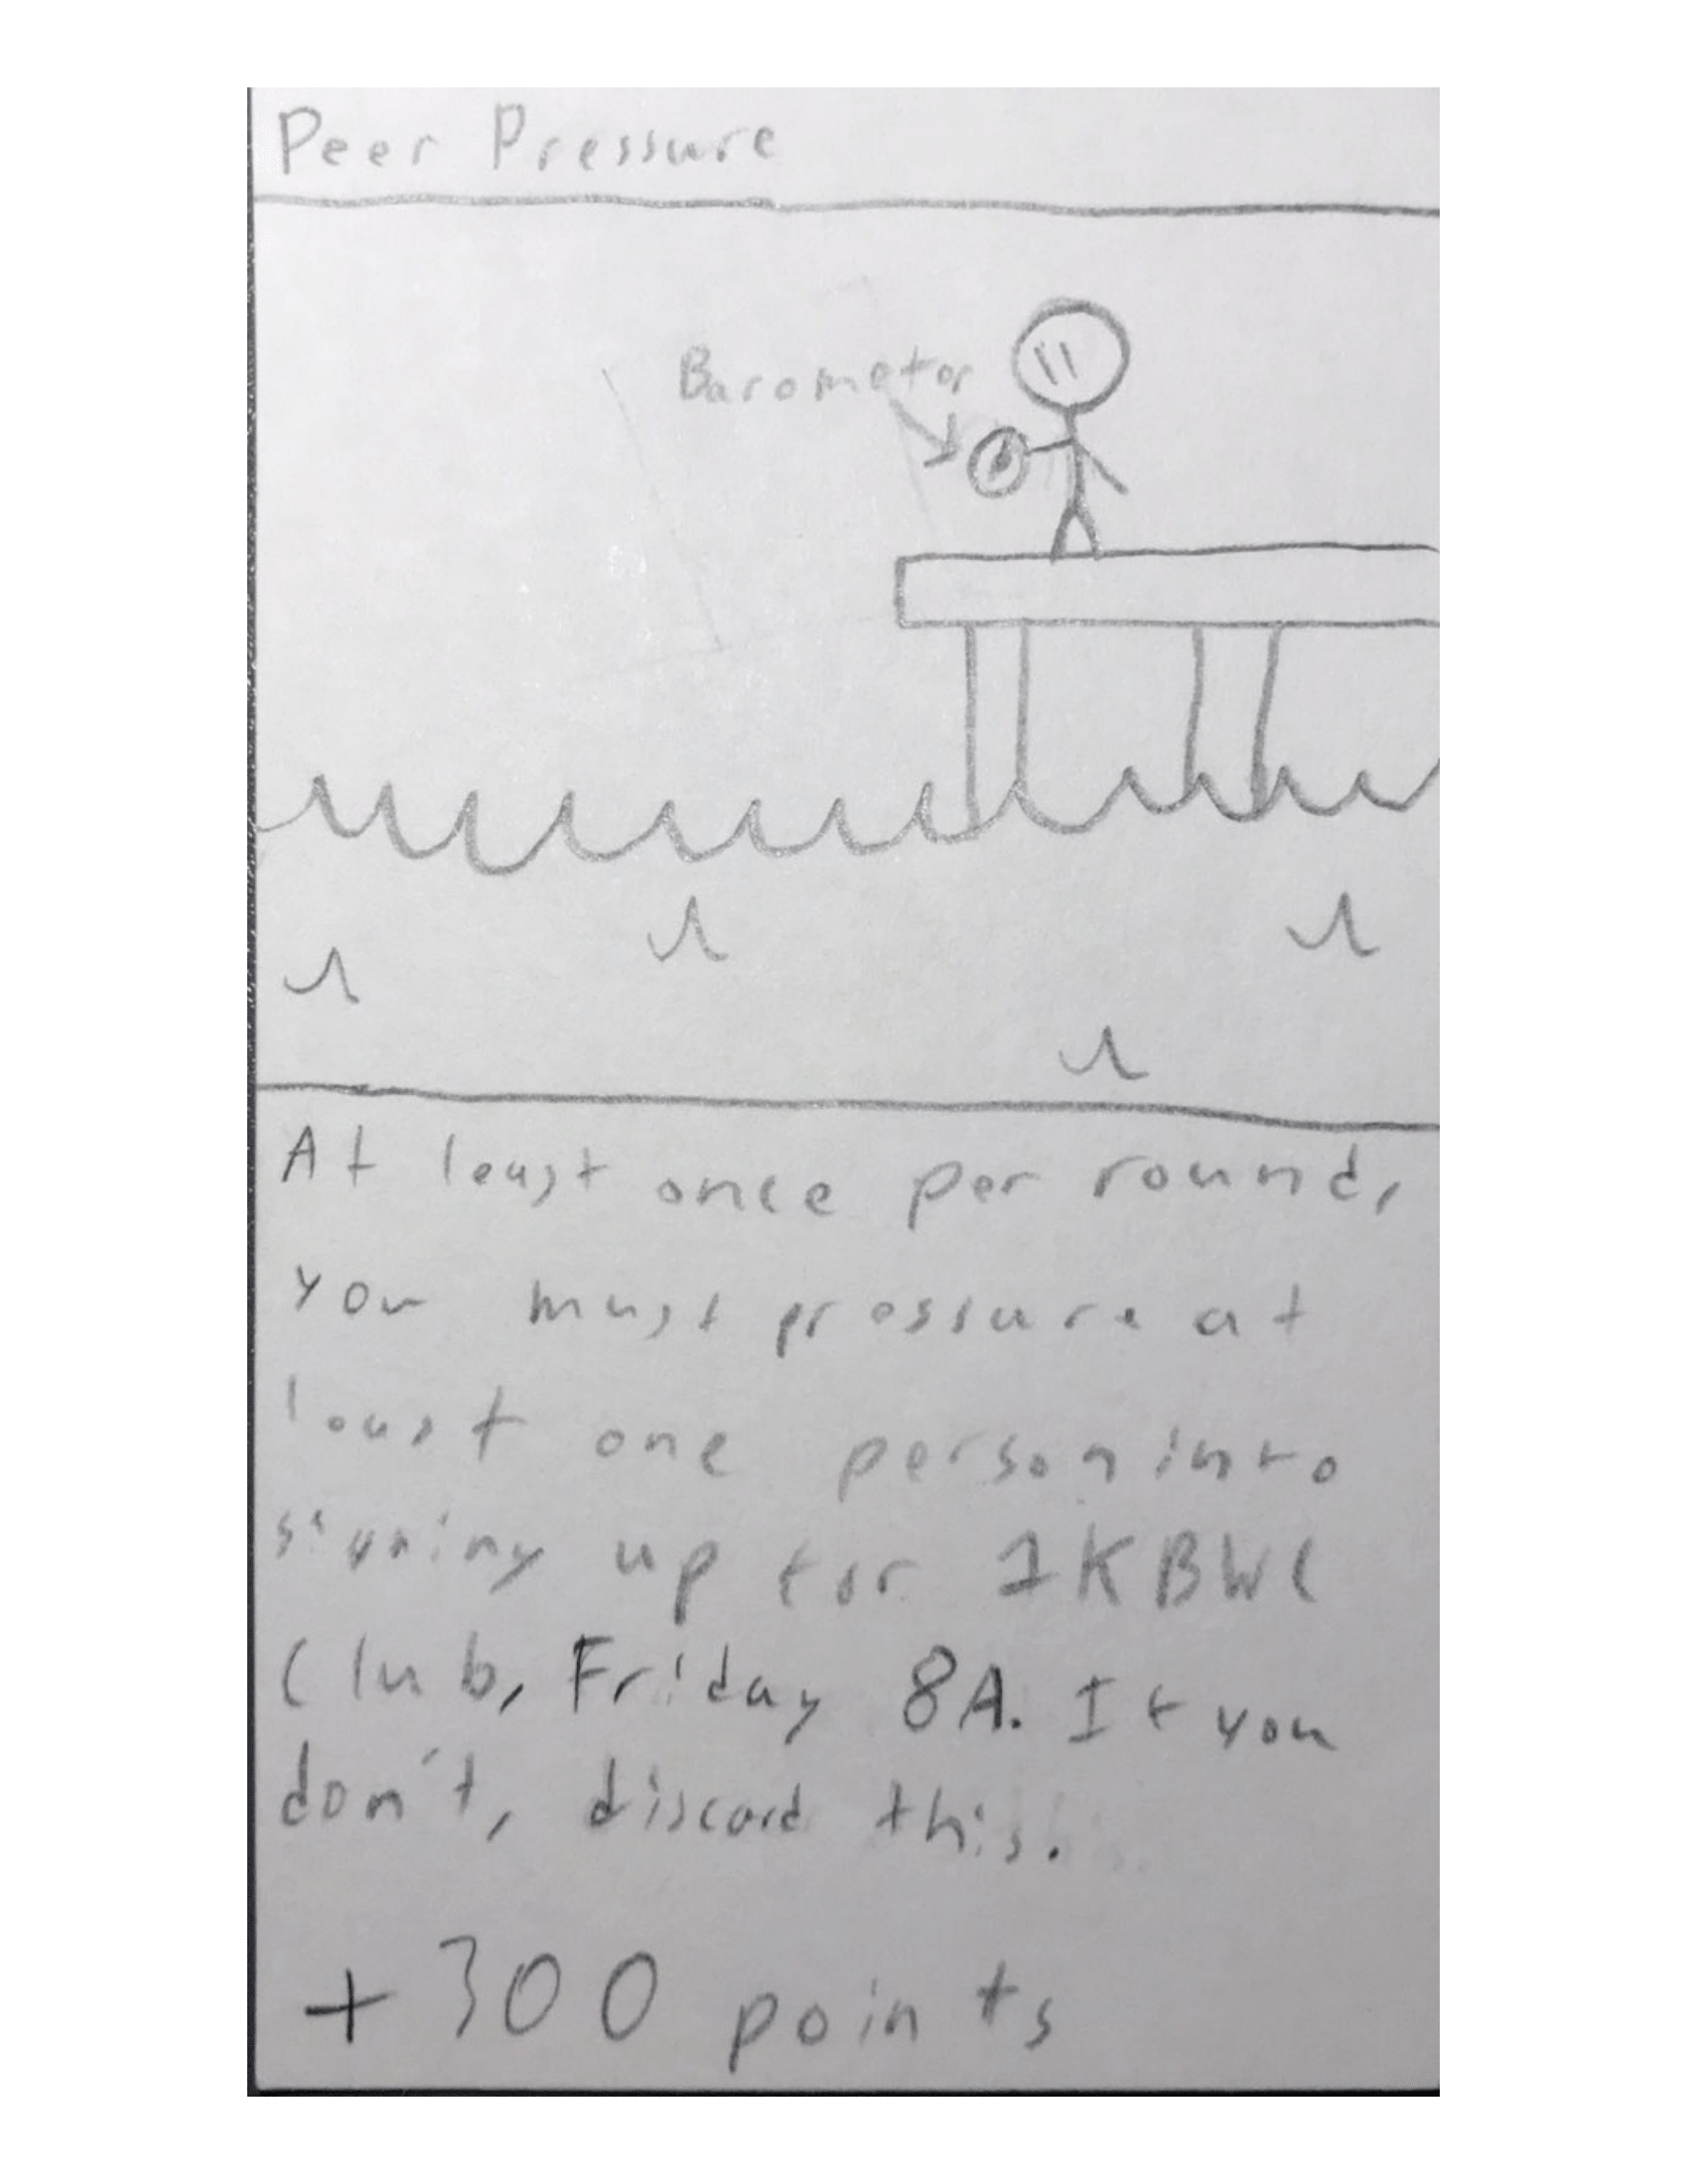 Peer Pressure
Barometer
At least once per round,
you must pressure at
least one person into
signing up for 1KBWC
Club, Friday 8A. If you
don't, discard this.
+300 points